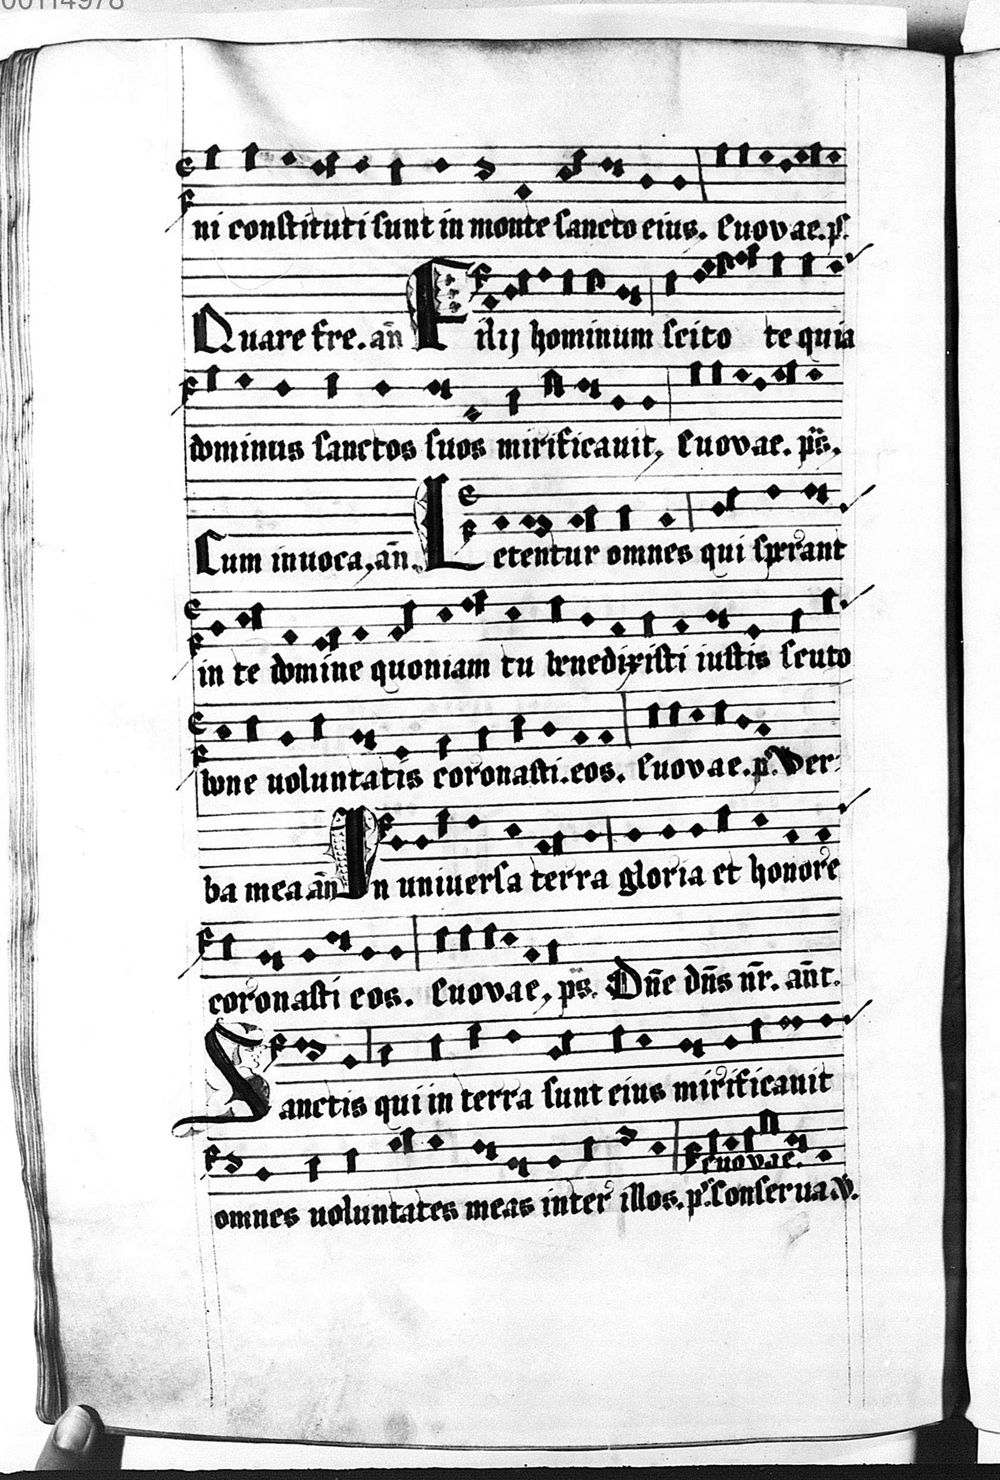 00114978
ni constituti sunt in monte sancto eius. Euovae. ps.
Quare fre. an̄ Filij hominum scito te quia
dominus sanctos suos mirificauit, Euovae. ps̄.
Cum inuoca, an̄. Letentur omnes qui sperant
in te domine quoniam tu benedixisti iustis scuto
bone uoluntatis coronasti. eos. Euovae. ps. Ver-
ba mea an̄ In uniuersa terra gloria et honore
coronasti eos. Euovae, ps̄. Dn̄e dn̄s nr̄. an̄t.
Sanctis qui in terra sunt eius mirificauit
euovae.
omnes uoluntates meas inter illos. ps. Conserua